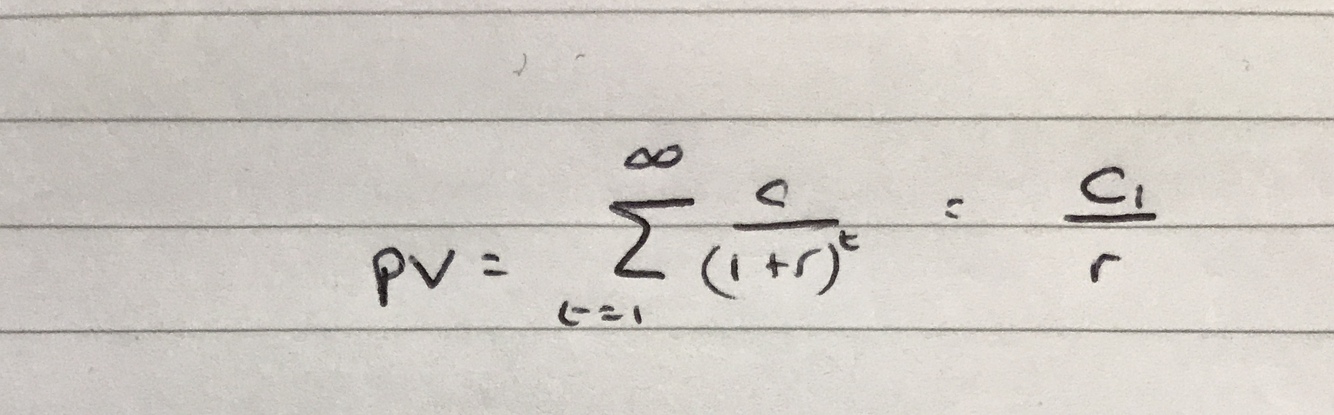 PV = ∞ Σ t=1 c/(1+r)^t = C₁/r